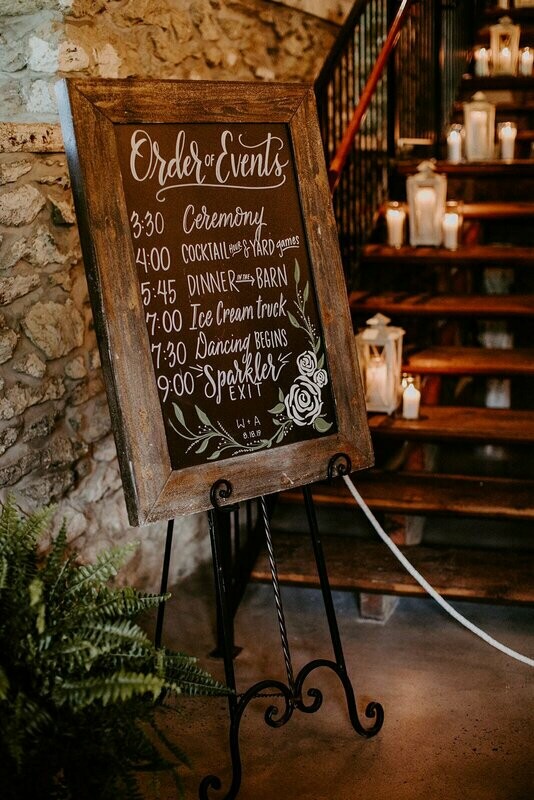 Order of Events
3:30 Ceremony
4:00 COCKTAIL Hour & YARD games
5:45 DINNER IN THE BARN
7:00 Ice Cream truck
7:30 Dancing BEGINS
9:00 Sparkler
EXIT
W + A
8.18.19